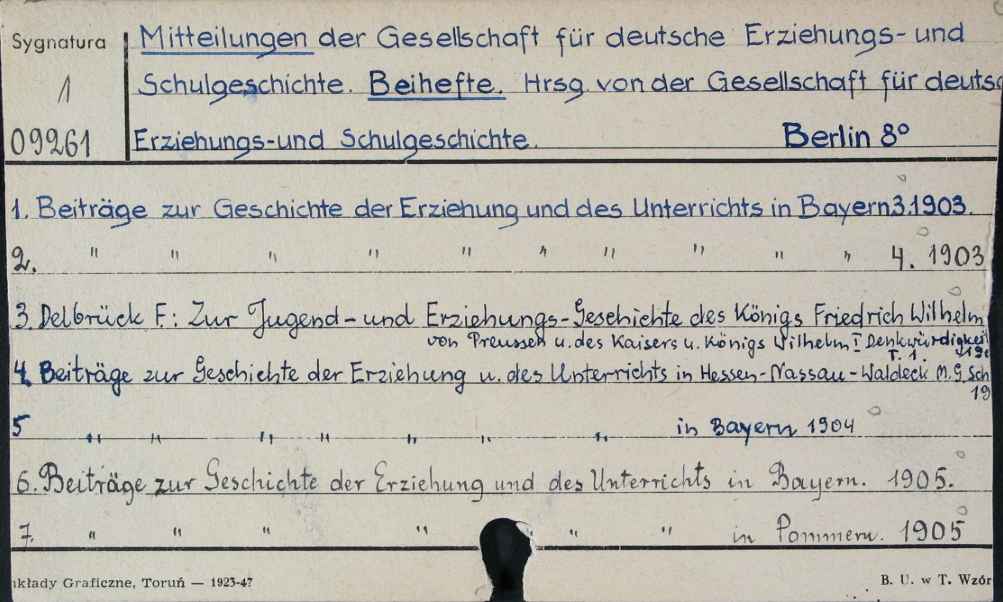 Sygnatura
1
09261
Mitteilungen der Gesellschaft für deutsche Erziehungs- und
Schulgeschichte. Beihefte. Hrsg. von der Gesellschaft für deutsc
Erziehungs-und Schulgeschichte. Berlin 8°
1. Beiträge zur Geschichte der Erziehung und des Unterrichts in Bayern 3.1903.
2. " " " " " " " " " " 4. 1903
3. Delbrück F.: Zur Jugend- und Erziehungs-Geschichte des Königs Friedrich Wilhelm
von Preussen u. des Kaisers u. Königs Wilhelm I Denkwürdigkeit
T. 1.
4. Beiträge zur Geschichte der Erziehung u. des Unterrichts in Hessen-Nassau-Waldeck M. G. Sch
19
5 " " " " " " " in Bayern 1904
6. Beiträge zur Geschichte der Erziehung und des Unterrichts in Bayern. 1905.
7. " " " " " " in Pommern. 1905
kłady Graficzne, Toruń — 1923-47
B. U. w T. Wzór